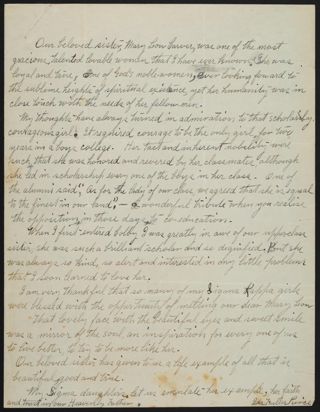 Our beloved sister, Mary Low Carver, was one of the most
gracious, talented lovable women that I have ever known. She was
loyal and true, One of God's noble-women, Ever looking forward to
the sublime heights of spiritual existence yet her humanity was in
close touch with the needs of her fellow men.
My thoughts have always turned in admiration to that scholarly,
courageous girl. It required courage to be the only girl, for two
years in a boys college. Her tact and inherent nobility were
such that she was honored and revered by her classmates although
she led in scholarship every one of the boys in her class. One of
the alumni said, "As for the lady of our class we agreed that she is equal
to the finest in our land", — a wonderful tribute when you realize
the opposition in those days to co-education.
When I first entered Colby I was greatly in awe of our upperclass
sister, she was such a brilliant scholar and so dignified. But she
was always so kind, so alert and interested in my little problems
that I soon learned to love her.
I am very thankful that so many of our Sigma Kappa girls
were blessed with the opportunity of meeting our dear Mary Low
That lovely face with the beautiful eyes and sweet smile
was a mirror of the soul, an inspiration for every one of us
to live better, to try to be more like her.
Our beloved sister has given to us a life example of all that is
beautiful, good and true.
My Sigma daughters, let us emulate her example, her faith
and trust in our Heavenly Father.